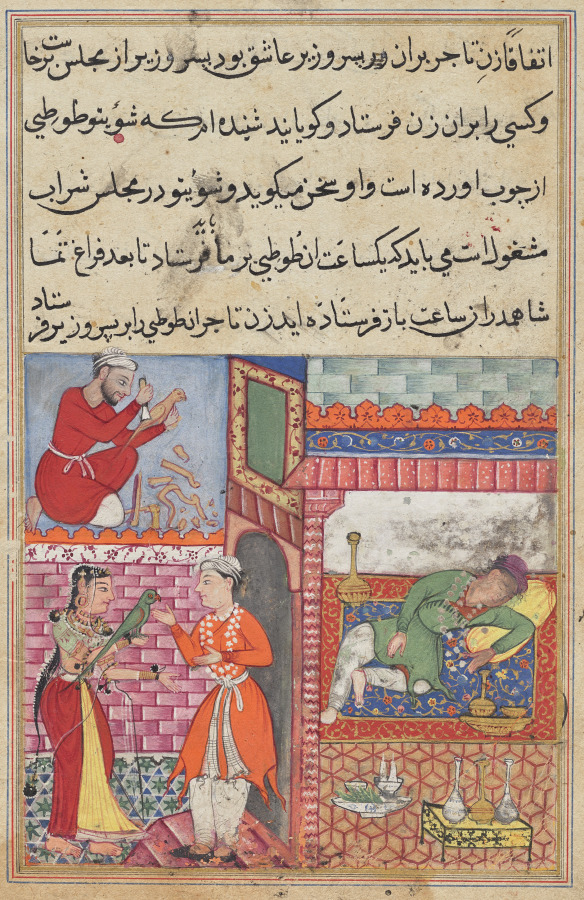 اتفاقًا زن تاجر بران پسر وزیر عاشق بود پسر وزیر از مجلس برخاست
وکسی را بران زن فرستاد و کویانید شنیده ام که شوئ تو طوطیی
از چوب اورده است واو سخن میکوید و شوئ تو در مجلس شراب
مشغول است می باید که یکساعت ان طوطیی بر ما فرستاد تا بعد فراغ
شاهمدران ساعت باز فرستاده اید زن تاجر ان طوطیی را بر پسر وزیر فرستاد